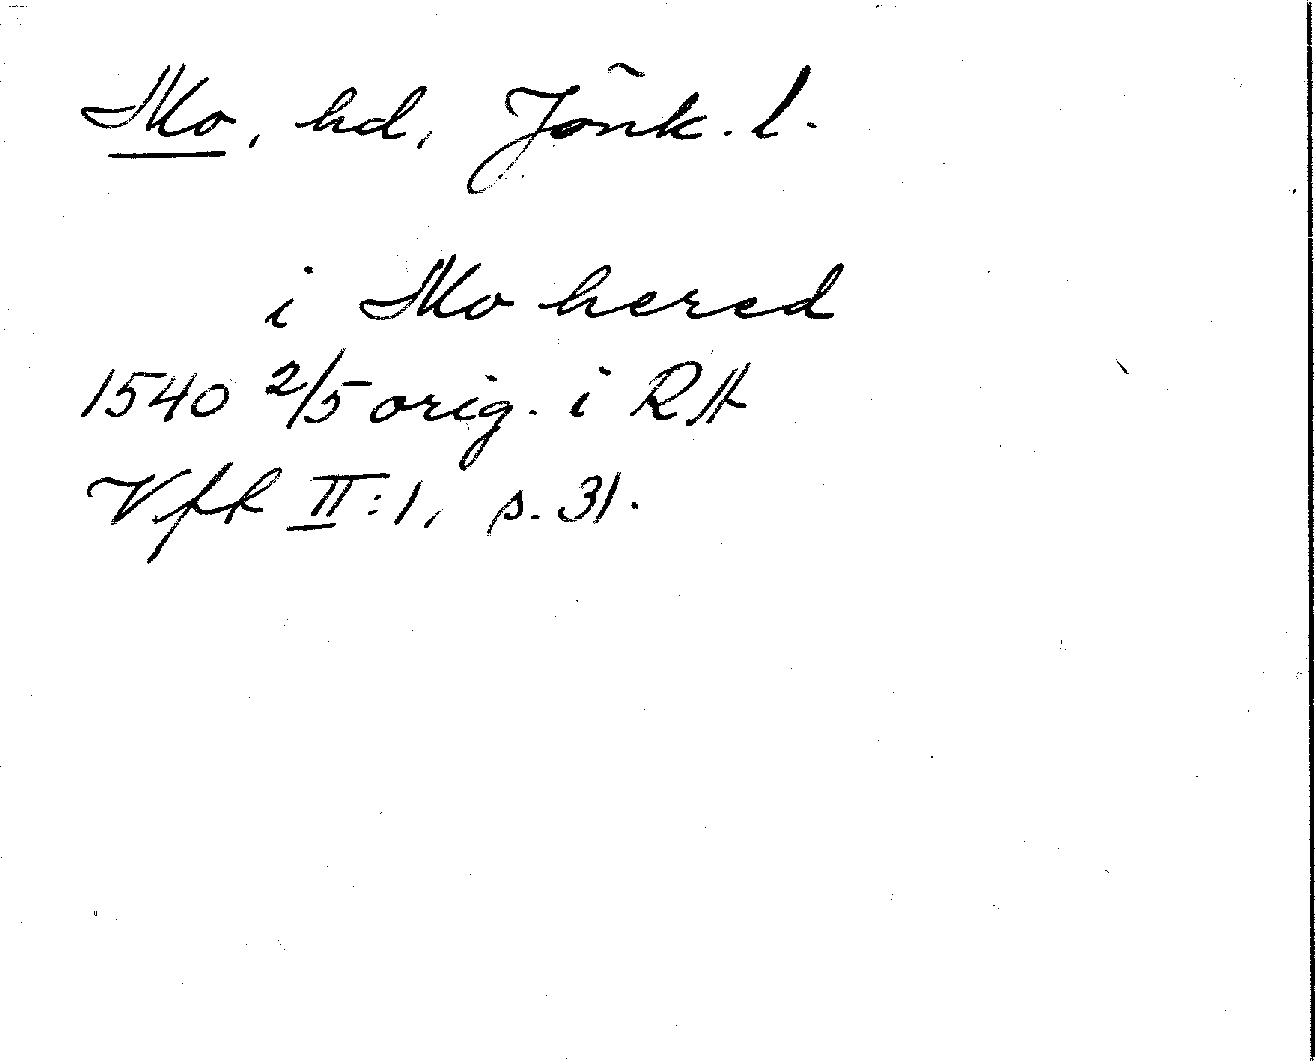 Mo, hd, Jönk. l.
i Mo hered
1540 2/5 orig. i RA
VfR II:1, s. 31.